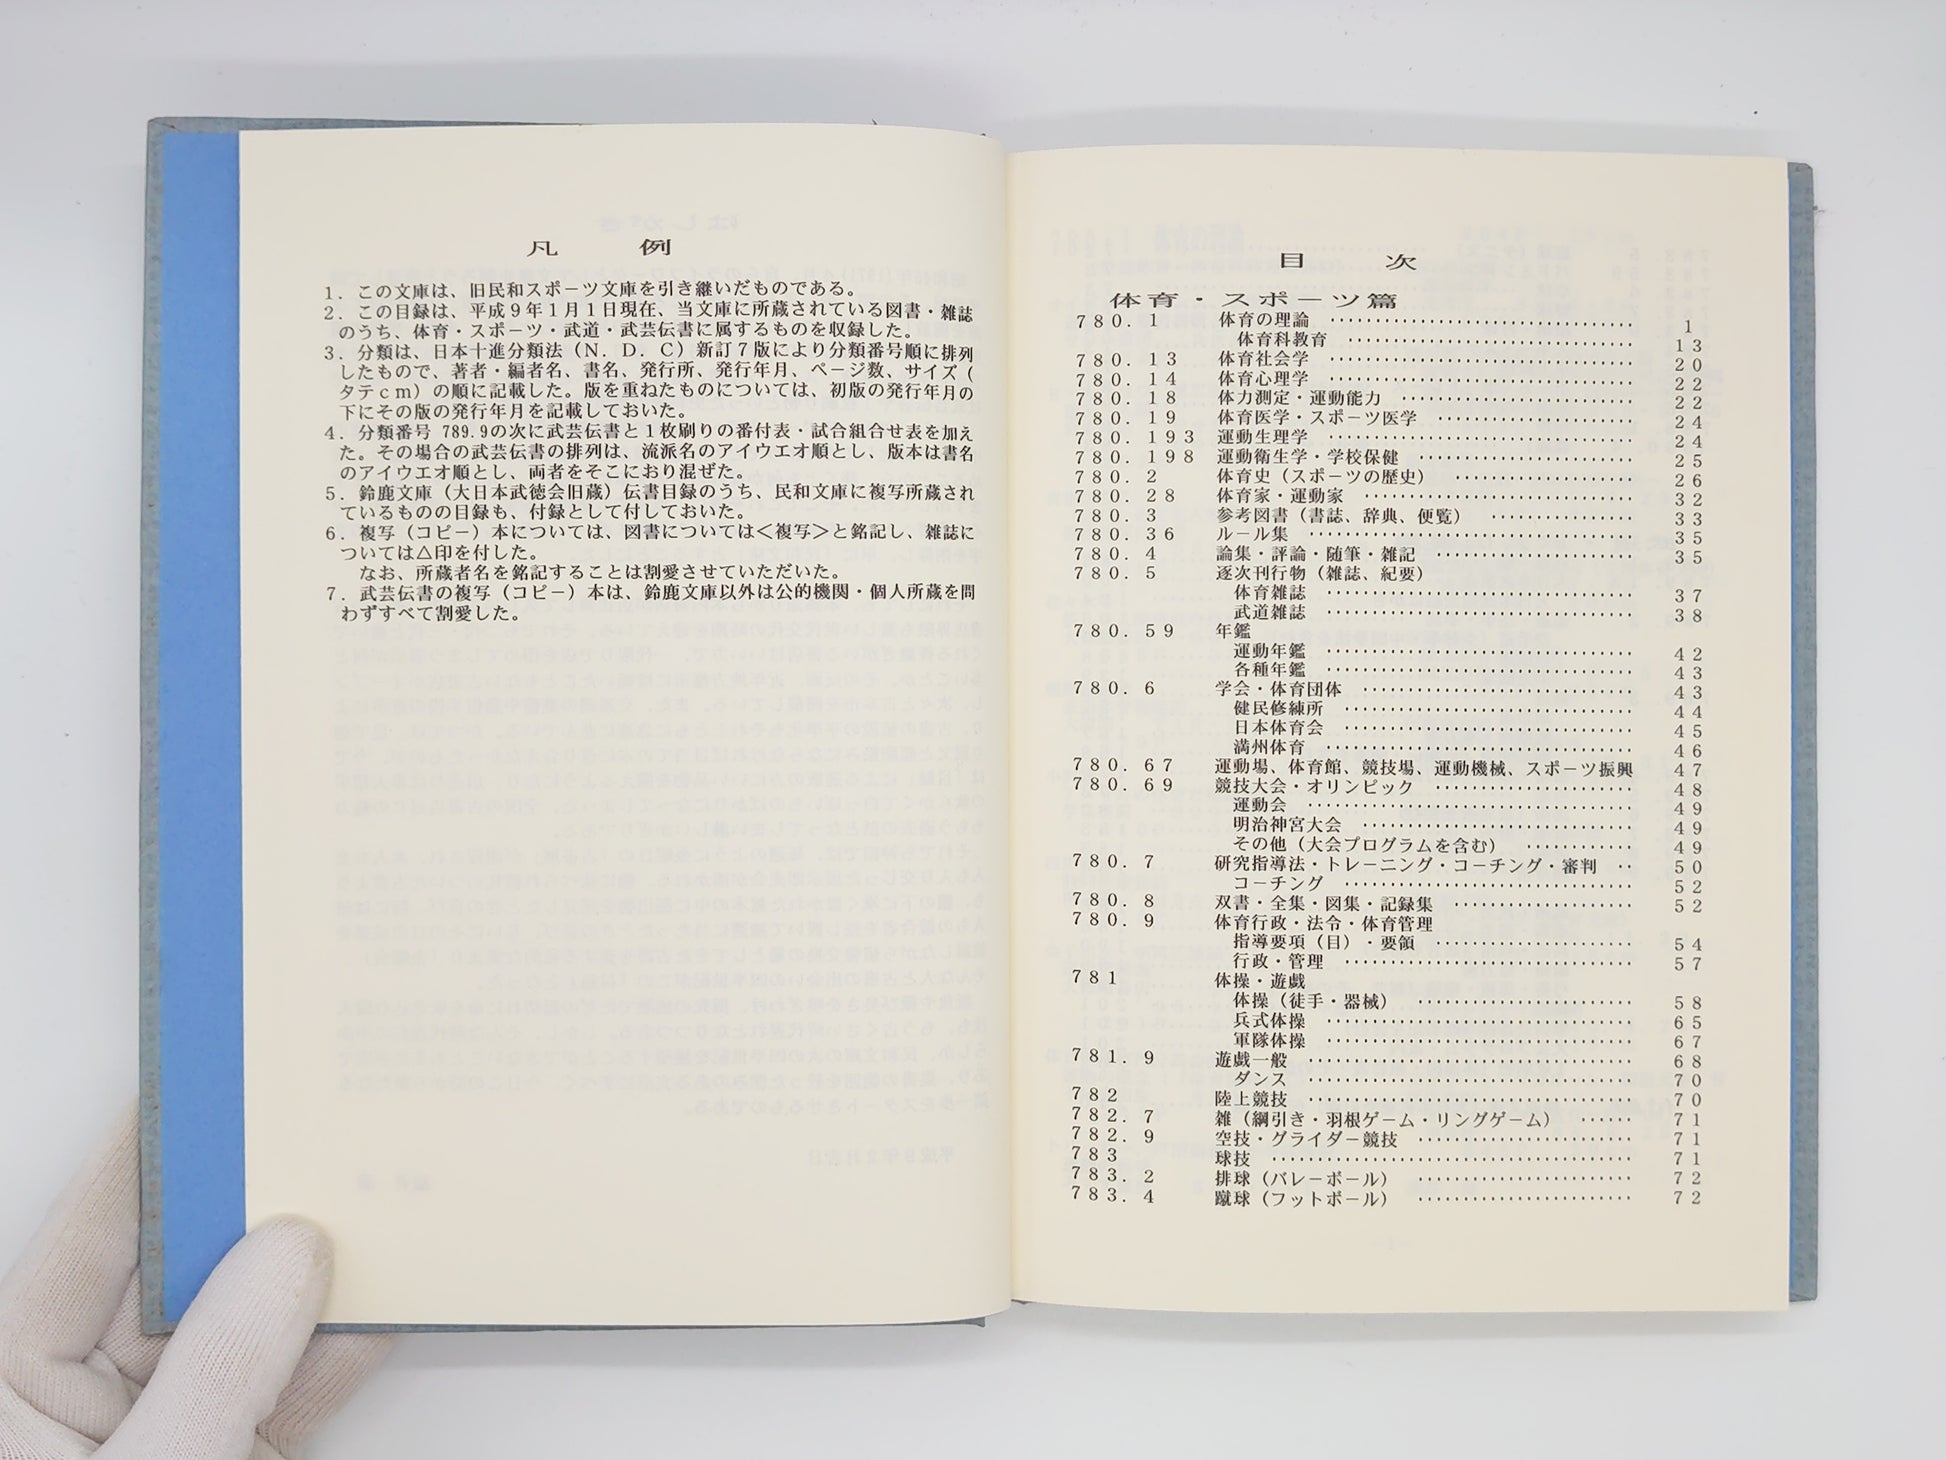 凡　例
1．この文庫は、旧民和スポーツ文庫を引き継いだものである。
2．この目録は、平成9年1月1日現在、当文庫に所蔵されている図書・雑誌
のうち、体育・スポーツ・武道・武芸伝書に属するものを収録した。
3．分類は、日本十進分類法（N．D．C）新訂7版により分類番号順に排列
したもので、著者・編者名、書名、発行所、発行年月、ページ数、サイズ（
タテcm）の順に記載した。版を重ねたものについては、初版の発行年月の
下にその版の発行年月を記載しておいた。
4．分類番号 789.9の次に武芸伝書と1枚刷りの番付表・試合組合せ表を加え
た。その場合の武芸伝書の排列は、流派名のアイウエオ順とし、版本は書名
のアイウエオ順とし、両者をそこにおり混ぜた。
5．鈴鹿文庫（大日本武徳会旧蔵）伝書目録のうち、民和文庫に複写所蔵され
ているものの目録も、付録として付しておいた。
6．複写（コピー）本については、図書については＜複写＞と銘記し、雑誌に
ついては△印を付した。
なお、所蔵者名を銘記することは割愛させていただいた。
7．武芸伝書の複写（コピー）本は、鈴鹿文庫以外は公的機関・個人所蔵を問
わずすべて割愛した。
目　次
体育・スポーツ篇
780．1 体育の理論 ………………………… 1
体育科教育 ………………………… 13
780．13 体育社会学 ………………………… 20
780．14 体育心理学 ………………………… 22
780．18 体力測定・運動能力 ………………………… 22
780．19 体育医学・スポーツ医学 ………………………… 24
780．193 運動生理学 ………………………… 24
780．198 運動衛生学・学校保健 ………………………… 25
780．2 体育史（スポーツの歴史） ………………………… 26
780．28 体育家・運動家 ………………………… 32
780．3 参考図書（書誌、辞典、便覧） ………………………… 33
780．36 ルール集 ………………………… 35
780．4 論集・評論・随筆・雑記 ………………………… 35
780．5 逐次刊行物（雑誌、紀要）
体育雑誌 ………………………… 37
武道雑誌 ………………………… 38
780．59 年鑑
運動年鑑 ………………………… 42
各種年鑑 ………………………… 43
780．6 学会・体育団体 ………………………… 43
健民修練所 ………………………… 44
日本体育会 ………………………… 45
満州体育 ………………………… 46
780．67 運動場、体育館、競技場、運動機械、スポーツ振興 47
780．69 競技大会・オリンピック ………………………… 48
運動会 ………………………… 49
明治神宮大会 ………………………… 49
その他（大会プログラムを含む） ………………………… 49
780．7 研究指導法・トレーニング・コーチング・審判 ‥ 50
コーチング ………………………… 52
780．8 双書・全集・図集・記録集 ………………………… 52
780．9 体育行政・法令・体育管理
指導要項（目）・要領 ………………………… 54
行政・管理 ………………………… 57
781 体操・遊戯
体操（徒手・器械） ………………………… 58
兵式体操 ………………………… 65
軍隊体操 ………………………… 67
781．9 遊戯一般 ………………………… 68
ダンス ………………………… 70
782 陸上競技 ………………………… 70
782．7 雑（綱引き・羽根ゲーム・リングゲーム） …… 71
782．9 空技・グライダー競技 ………………………… 71
783 球技 ………………………… 71
783．2 排球（バレーボール） ………………………… 72
783．4 蹴球（フットボール） ………………………… 72